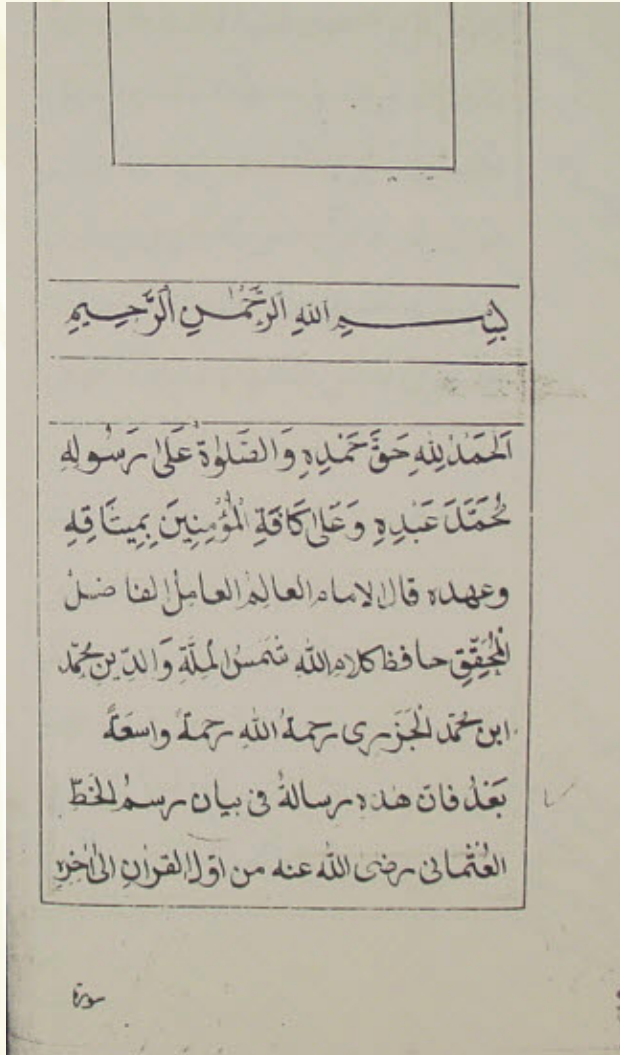 بِسْمِ اللهِ الرَّحْمٰنِ الرَّحِيمِ
اَلْحَمْدُ لِلّٰهِ حَقَّ حَمْدِهِ وَالصَّلٰوةُ عَلٰى رَسُولِهِ
مُحَمَّدَ عَبْدِهِ وَعَلٰى كَافَةِ الْمُؤْمِنِينَ بِمِيثَاقِهِ
وعهده قال الامام العالم العامل الفاضل
الْمُحَقِّقِ حافظ كلام الله شَمسُ الْمِلَّةِ وَالدِّينِ محمّد
ابن محمّد الْجَزَرى رحمةُ اللهِ رحمةً واسعَةً
بَعْدُ فانّ هٰذه رسالةٌ فى بيان رسمُ الْخَطّ
العُثْمانى رضى الله عنه من اوّل القران الى اٰخرهِ
سورة